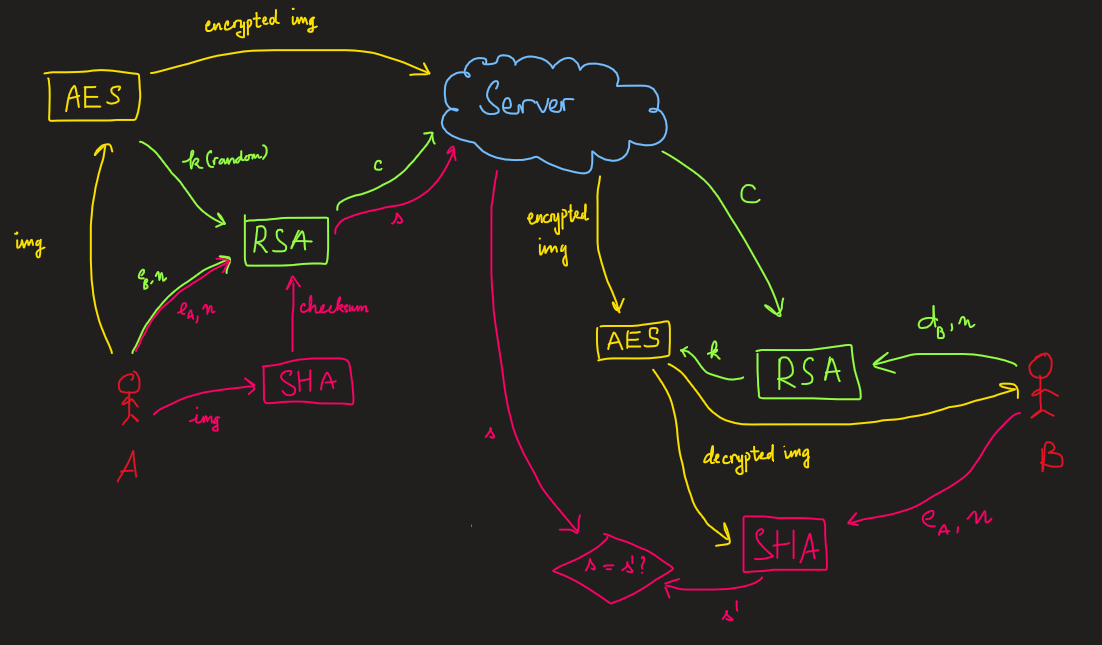 encrypted img
AES
Server
k (random)
c
s
img
RSA
e_B, n
e_A, n
checksum
SHA
img
A
encrypted
img
C
AES
k
RSA
d_B, n
B
s
decrypted img
e_A, n
SHA
s = s'?
s'